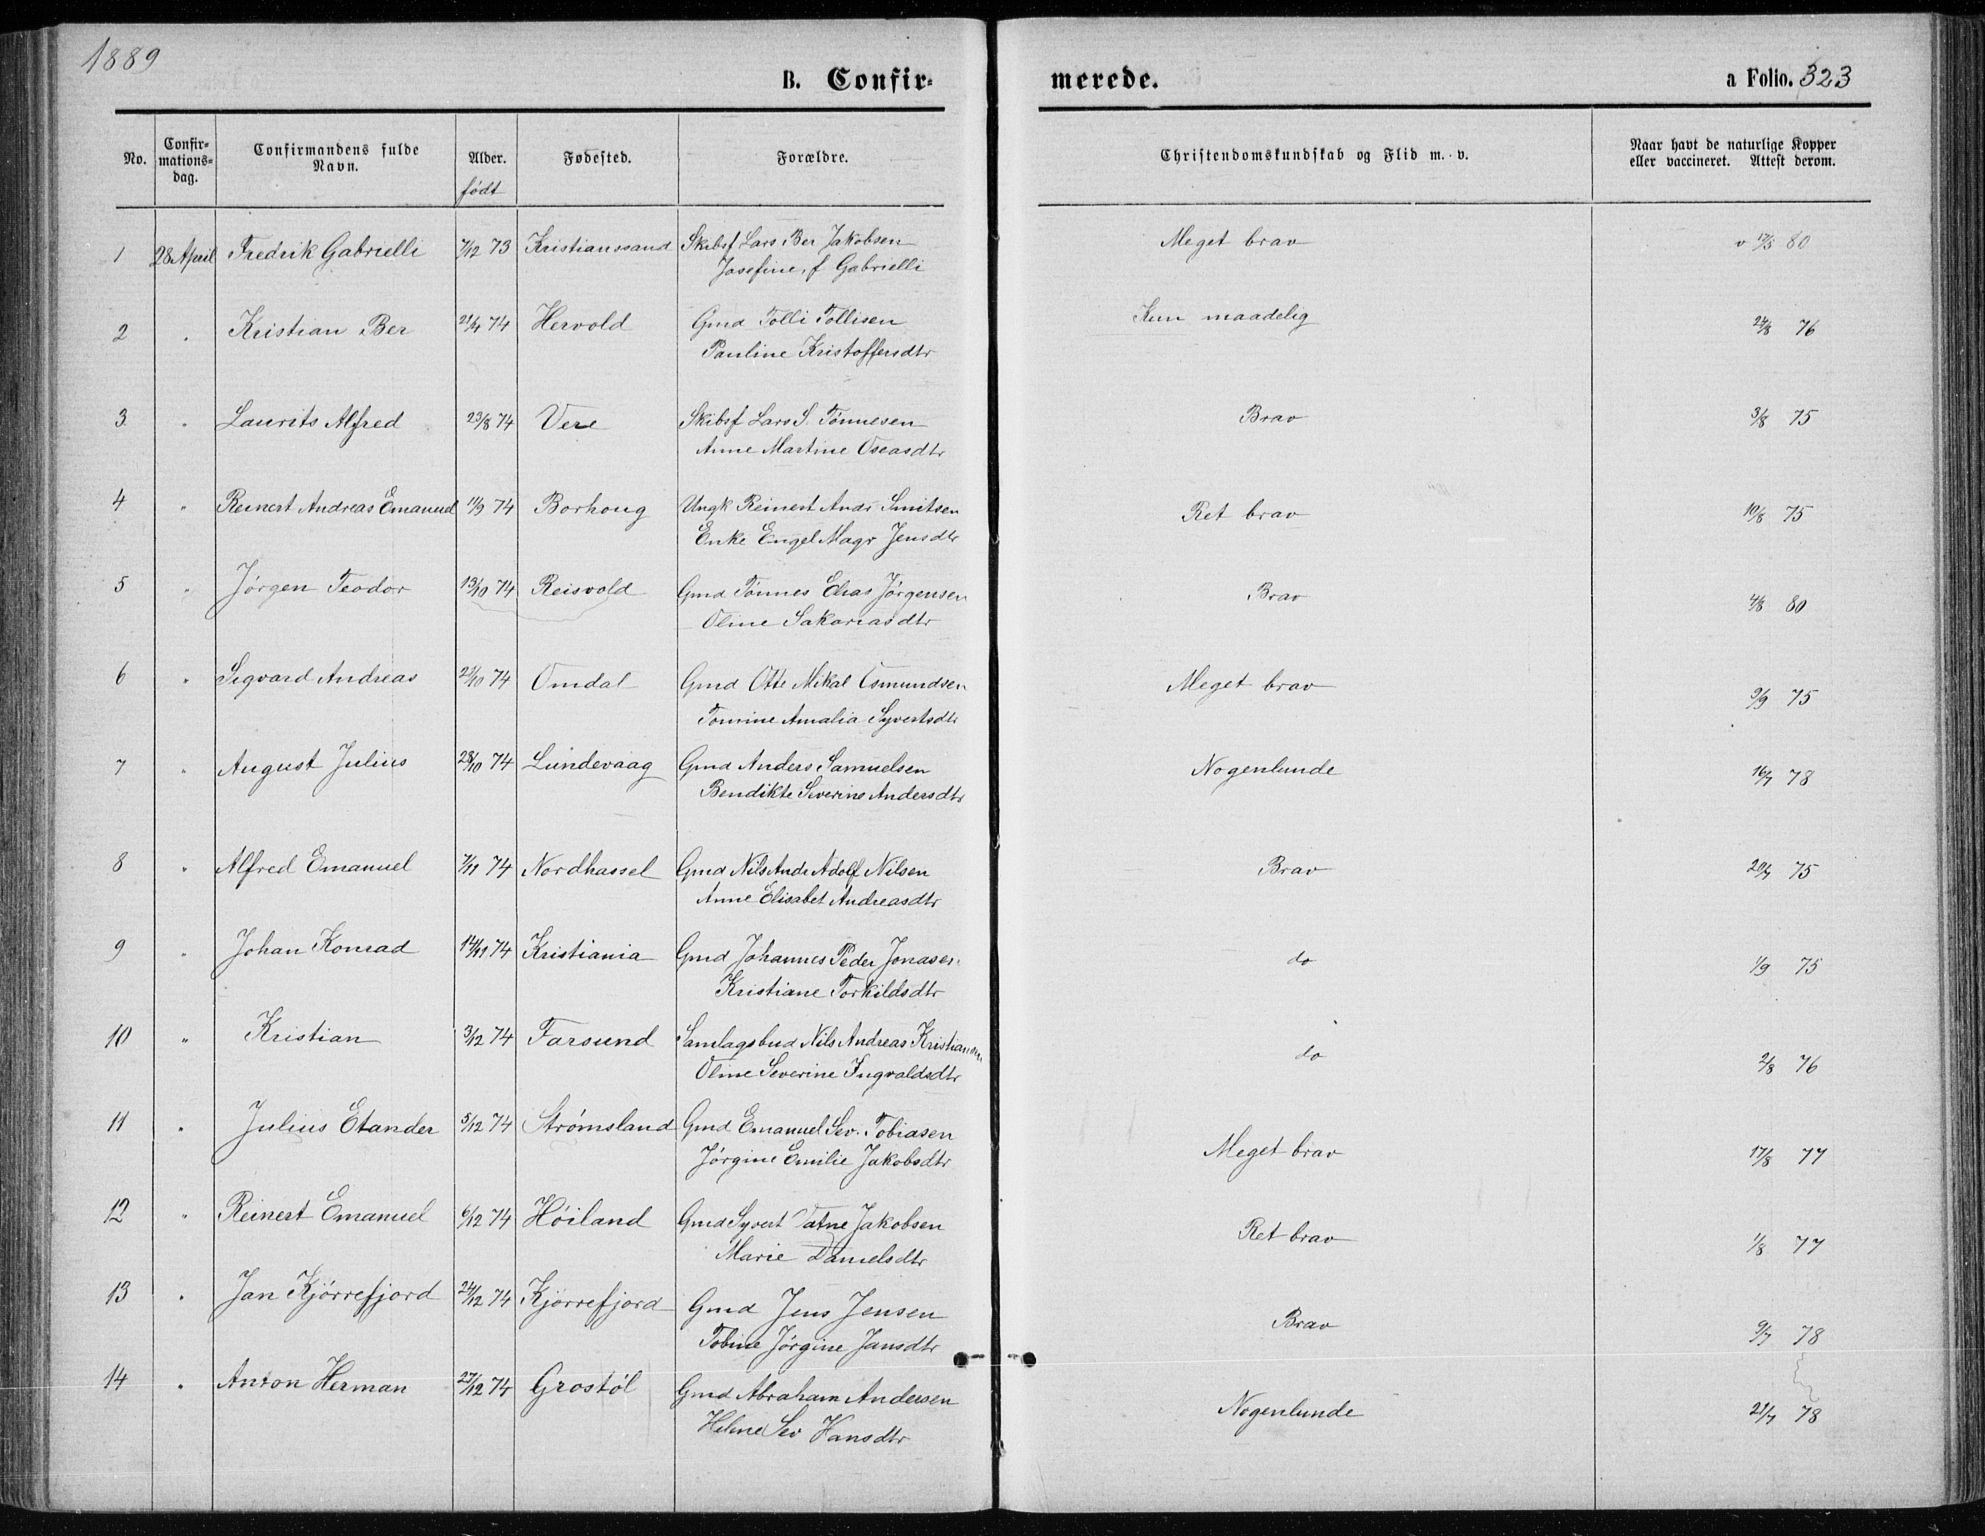 1889
B. Confir-
merede.
a Folio. 323
No.
Confir-
mations-
dag.
Confirmandens fulde
Navn.
Alder.
født
Fødested.
Forældre.
Christendomskundskab og Flid m. v.
Naar havt de naturlige Kopper
eller vaccineret. Attest derom.
1 28 April Fredrik Gabrielli 7/12 73 Kristianssand Skibsf Lars Ber Jakobsen Meget brav v 17/5 80
Josefine, f Gabrielli
2 " Kristian Ber 21/4 74 Hervold Gmd Tolli Tollisen Kun maadelig 24/8 76
Pauline Kristoffersdtr
3 " Laurits Alfred 23/8 74 Vere Skibsf Lars S. Tønnesen Brav 3/8 75
Anne Martine Oseasdtr
4 " Reinert Andreas Emanuel 11/9 74 Borhoug Ungk Reinert Andr Smitsen Ret brav 10/8 75
Enke Engel Magr Jensdtr
5 " Jørgen Teodor 13/10 74 Reisvold Gmd Tønnes Elias Jørgensen Brav 4/8 80
Oline Sakariasdtr
6 " Sigvard Andreas 21/10 74 Omdal Gmd Otte Mikal Osmundsen Meget brav 9/9 75
Tomine Amalia Syvertsdtr
7 " August Julius 28/10 74 Lundevaag Gmd Anders Samuelsen Nogenlunde 16/7 78
Bendikte Severine Andersdtr
8 " Alfred Emanuel 7/11 74 Nordhassel Gmd Nils Andr Adolf Nilsen Brav 20/7 75
Anne Elisabet Andreasdtr
9 " Johan Konrad 14/11 74 Kristiania Gmd Johannes Peder Jonasen do 1/9 75
Kristiane Torkildsdtr
10 " Kristian 3/12 74 Farsund Samlagsbud Nils Andreas Kristiansen do 2/8 76
Oline Severine Ingvaldsdtr
11 " Julius Etander 5/12 74 Strømsland Gmd Emanuel Sev. Tobiasen Meget brav 17/8 77
Jørgine Emilie Jakobsdtr
12 " Reinert Emanuel 6/12 74 Høiland Gmd Syvert Tatne Jakobsen Ret brav 1/8 77
Marie Danielsdtr
13 " Jan Kjørrefjord 24/12 74 Kjørrefjord Gmd Jens Jensen Brav 9/7 78
Tobine Jørgine Jansdtr
14 " Anton Herman 27/12 74 Grostøl Gmd Abraham Andersen Nogenlunde 21/7 78
Helene Sev Hansdtr